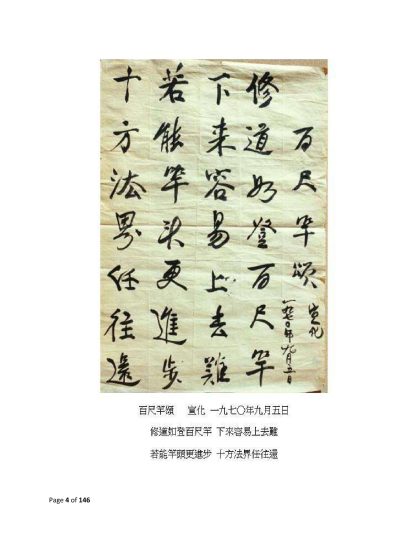 百尺竿頌
宣化
一九七〇年九月五日
修道如登百尺竿
下来容易上去難
若能竿头更進步
十方法界任往還
百尺竿頌 宣化 一九七〇年九月五日
修道如登百尺竿 下來容易上去難
若能竿頭更進步 十方法界任往還
Page 4 of 146